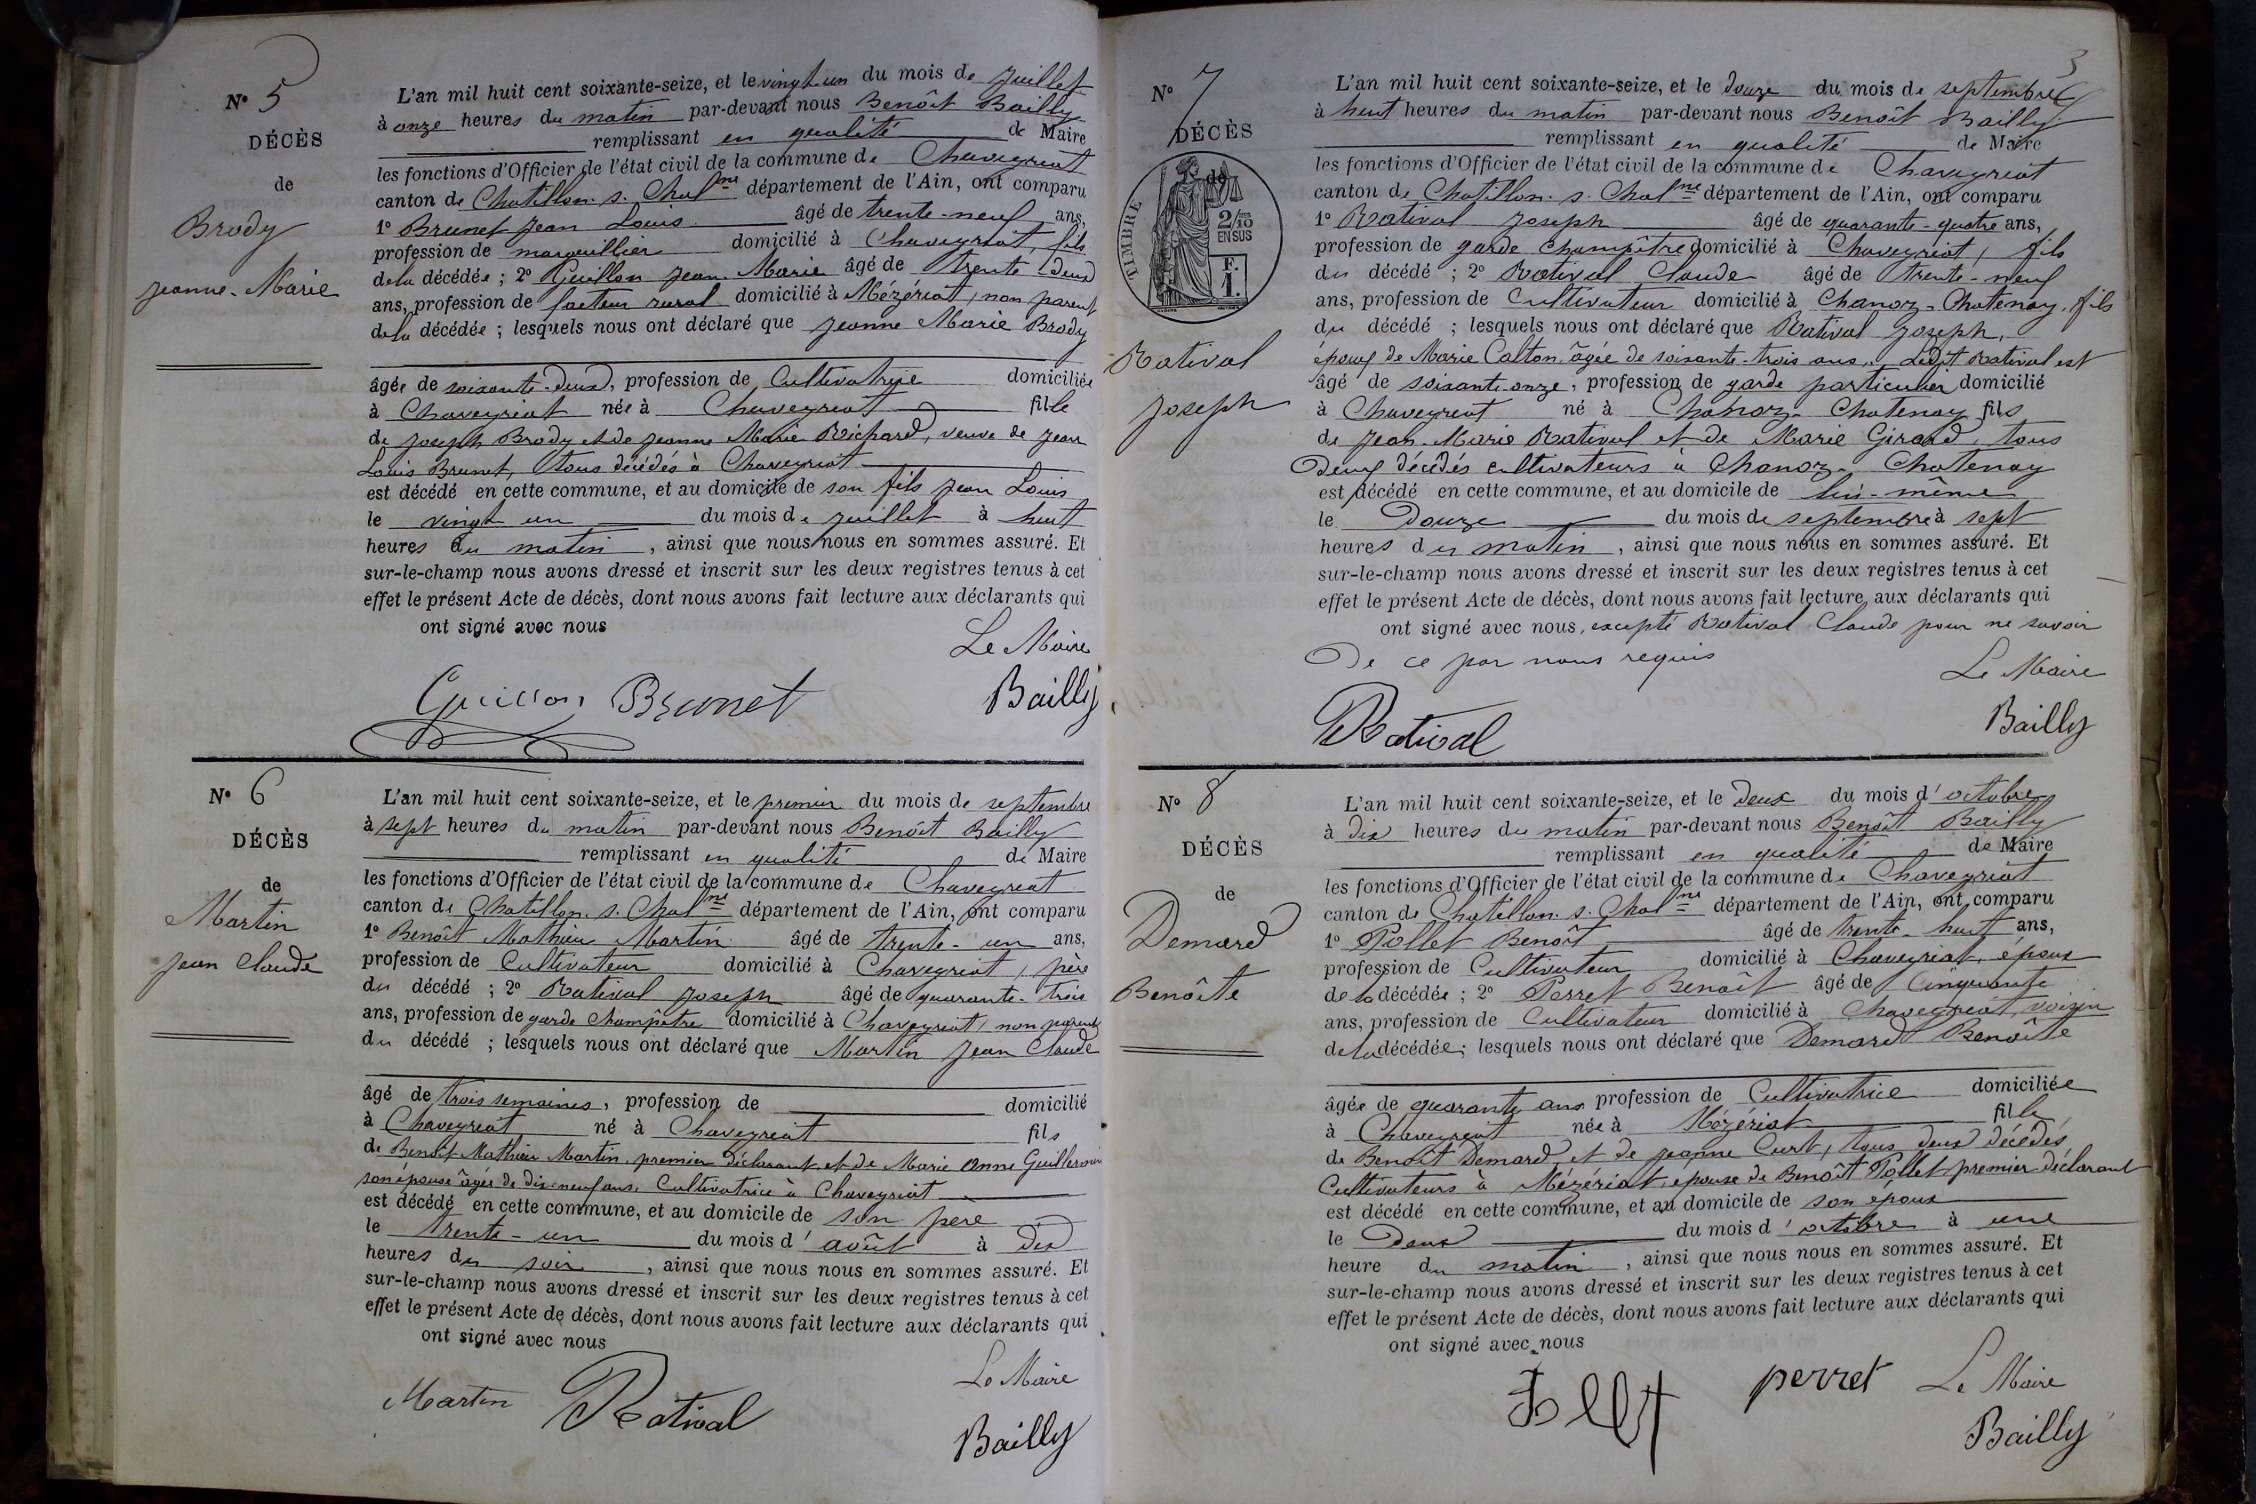 N° 5
DÉCÈS
de
Brody
Jeanne-Marie
L'an mil huit cent soixante-seize, et le vingt un du mois de Juillet
à onze heures du matin par-devant nous Benôit Bailly
remplissant en qualité de Maire
les fonctions d'Officier de l'état civil de la commune de Chaveyriat
canton de Chatillon. s. Chalne département de l'Ain, ont comparu
1° Brunet Jean Louis âgé de trente-neuf ans,
profession de marguillier domicilié à Chaveyriat, fils
de la décédée ; 2° Guillon Jean Marie âgé de trente deux
ans, profession de facteur rural domicilié à Mézériat, non parent
de la décédée ; lesquels nous ont déclaré que Jeanne Marie Brody
âgée de soixante-deux, profession de Cultivatrice domiciliée
à Chaveyriat née à Chaveyriat fille
de Joseph Brody et de Jeanne Marie Richard, veuve de Jean
Louis Brunet, tous décédés à Chaveyriat
est décédé en cette commune, et au domicile de son fils Jean Louis
le vingt un du mois de juillet à huit
heures du matin, ainsi que nous nous en sommes assuré. Et
sur-le-champ nous avons dressé et inscrit sur les deux registres tenus à cet
effet le présent Acte de décès, dont nous avons fait lecture aux déclarants qui
ont signé avec nous
Le Maire
Guillon Brunet Bailly
N° 6
DÉCÈS
de
Martin
Jean Claude
L'an mil huit cent soixante-seize, et le premier du mois de septembre
à sept heures du matin par-devant nous Benôit Bailly
remplissant en qualité de Maire
les fonctions d'Officier de l'état civil de la commune de Chaveyriat
canton de Chatillon. s. Chalne département de l'Ain, ont comparu
1° Benôit Mathieu Martin âgé de trente-un ans,
profession de Cultivateur domicilié à Chaveyriat, père
du décédé ; 2° Ratival Joseph âgé de quarante-trois
ans, profession de garde champêtre domicilié à Chaveyriat, non parent
du décédé ; lesquels nous ont déclaré que Martin Jean Claude
âgé de trois semaines, profession de domicilié
à Chaveyriat né à Chaveyriat fils
de Benôit Mathieu Martin, premier déclarant et de Marie Anne Guillermin
son épouse âgée de dix-neuf ans, Cultivatrice à Chaveyriat
est décédé en cette commune, et au domicile de son père
le trente-un du mois d'août à dix
heures du soir, ainsi que nous nous en sommes assuré. Et
sur-le-champ nous avons dressé et inscrit sur les deux registres tenus à cet
effet le présent Acte de décès, dont nous avons fait lecture aux déclarants qui
ont signé avec nous
Le Maire
Martin Ratival Bailly
3
N° 7
DÉCÈS
de
TIMBRE
2/10
EN SUS
F.
1.
Ratival
Joseph
L'an mil huit cent soixante-seize, et le douze du mois de septembre
à huit heures du matin par-devant nous Benôit Bailly
remplissant en qualité de Maire
les fonctions d'Officier de l'état civil de la commune de Chaveyriat
canton de Chatillon. s. Chalne département de l'Ain, ont comparu
1° Ratival Joseph âgé de quarante-quatre ans,
profession de garde champêtre domicilié à Chaveyriat, fils
du décédé ; 2° Ratival Claude âgé de trente-neuf
ans, profession de Cultivateur domicilié à Chanoz-Chatenay, fils
du décédé ; lesquels nous ont déclaré que Ratival Joseph,
époux de Marie Calton, âgée de soixante-trois ans, Ledit Ratival est
âgé de soixante-onze, profession de garde particulier domicilié
à Chaveyriat né à Chanoz-Chatenay fils
de Jean-Marie Ratival et de Marie Girard, tous
deux décédés cultivateurs à Chanoz-Chatenay
est décédé en cette commune, et au domicile de lui-même
le Douze du mois de septembre à sept
heures du matin, ainsi que nous nous en sommes assuré. Et
sur-le-champ nous avons dressé et inscrit sur les deux registres tenus à cet
effet le présent Acte de décès, dont nous avons fait lecture aux déclarants qui
ont signé avec nous, excepté Ratival Claude pour ne savoir
De ce par nous requis
Le Maire
Ratival Bailly
N° 8
DÉCÈS
de
Demard
Benôite
L'an mil huit cent soixante-seize, et le Deux du mois d'octobre
à dix heures du matin par-devant nous Benôit Bailly
remplissant en qualité de Maire
les fonctions d'Officier de l'état civil de la commune de Chaveyriat
canton de Chatillon. s. Chalne département de l'Ain, ont comparu
1° Pollet Benôit âgé de trente-huit ans,
profession de Cultivateur domicilié à Chaveyriat, époux
de la décédée ; 2° Perret Benoît âgé de Cinquante
ans, profession de Cultivateur domicilié à Chaveyriat, voisin
de la décédée ; lesquels nous ont déclaré que Demard Benoîte
âgée de quarante ans profession de Cultivatrice domiciliée
à Chaveyriat née à Mézériat fille
de Benôit Demard et de Jeanne Curt, tous deux décédés
Cultivateurs à Mézériat, épouse de Benôit Pollet premier déclarant
est décédé en cette commune, et au domicile de son époux
le Deux du mois d'octobre à une
heure du matin, ainsi que nous nous en sommes assuré. Et
sur-le-champ nous avons dressé et inscrit sur les deux registres tenus à cet
effet le présent Acte de décès, dont nous avons fait lecture aux déclarants qui
ont signé avec nous
perret Le Maire
Bailly